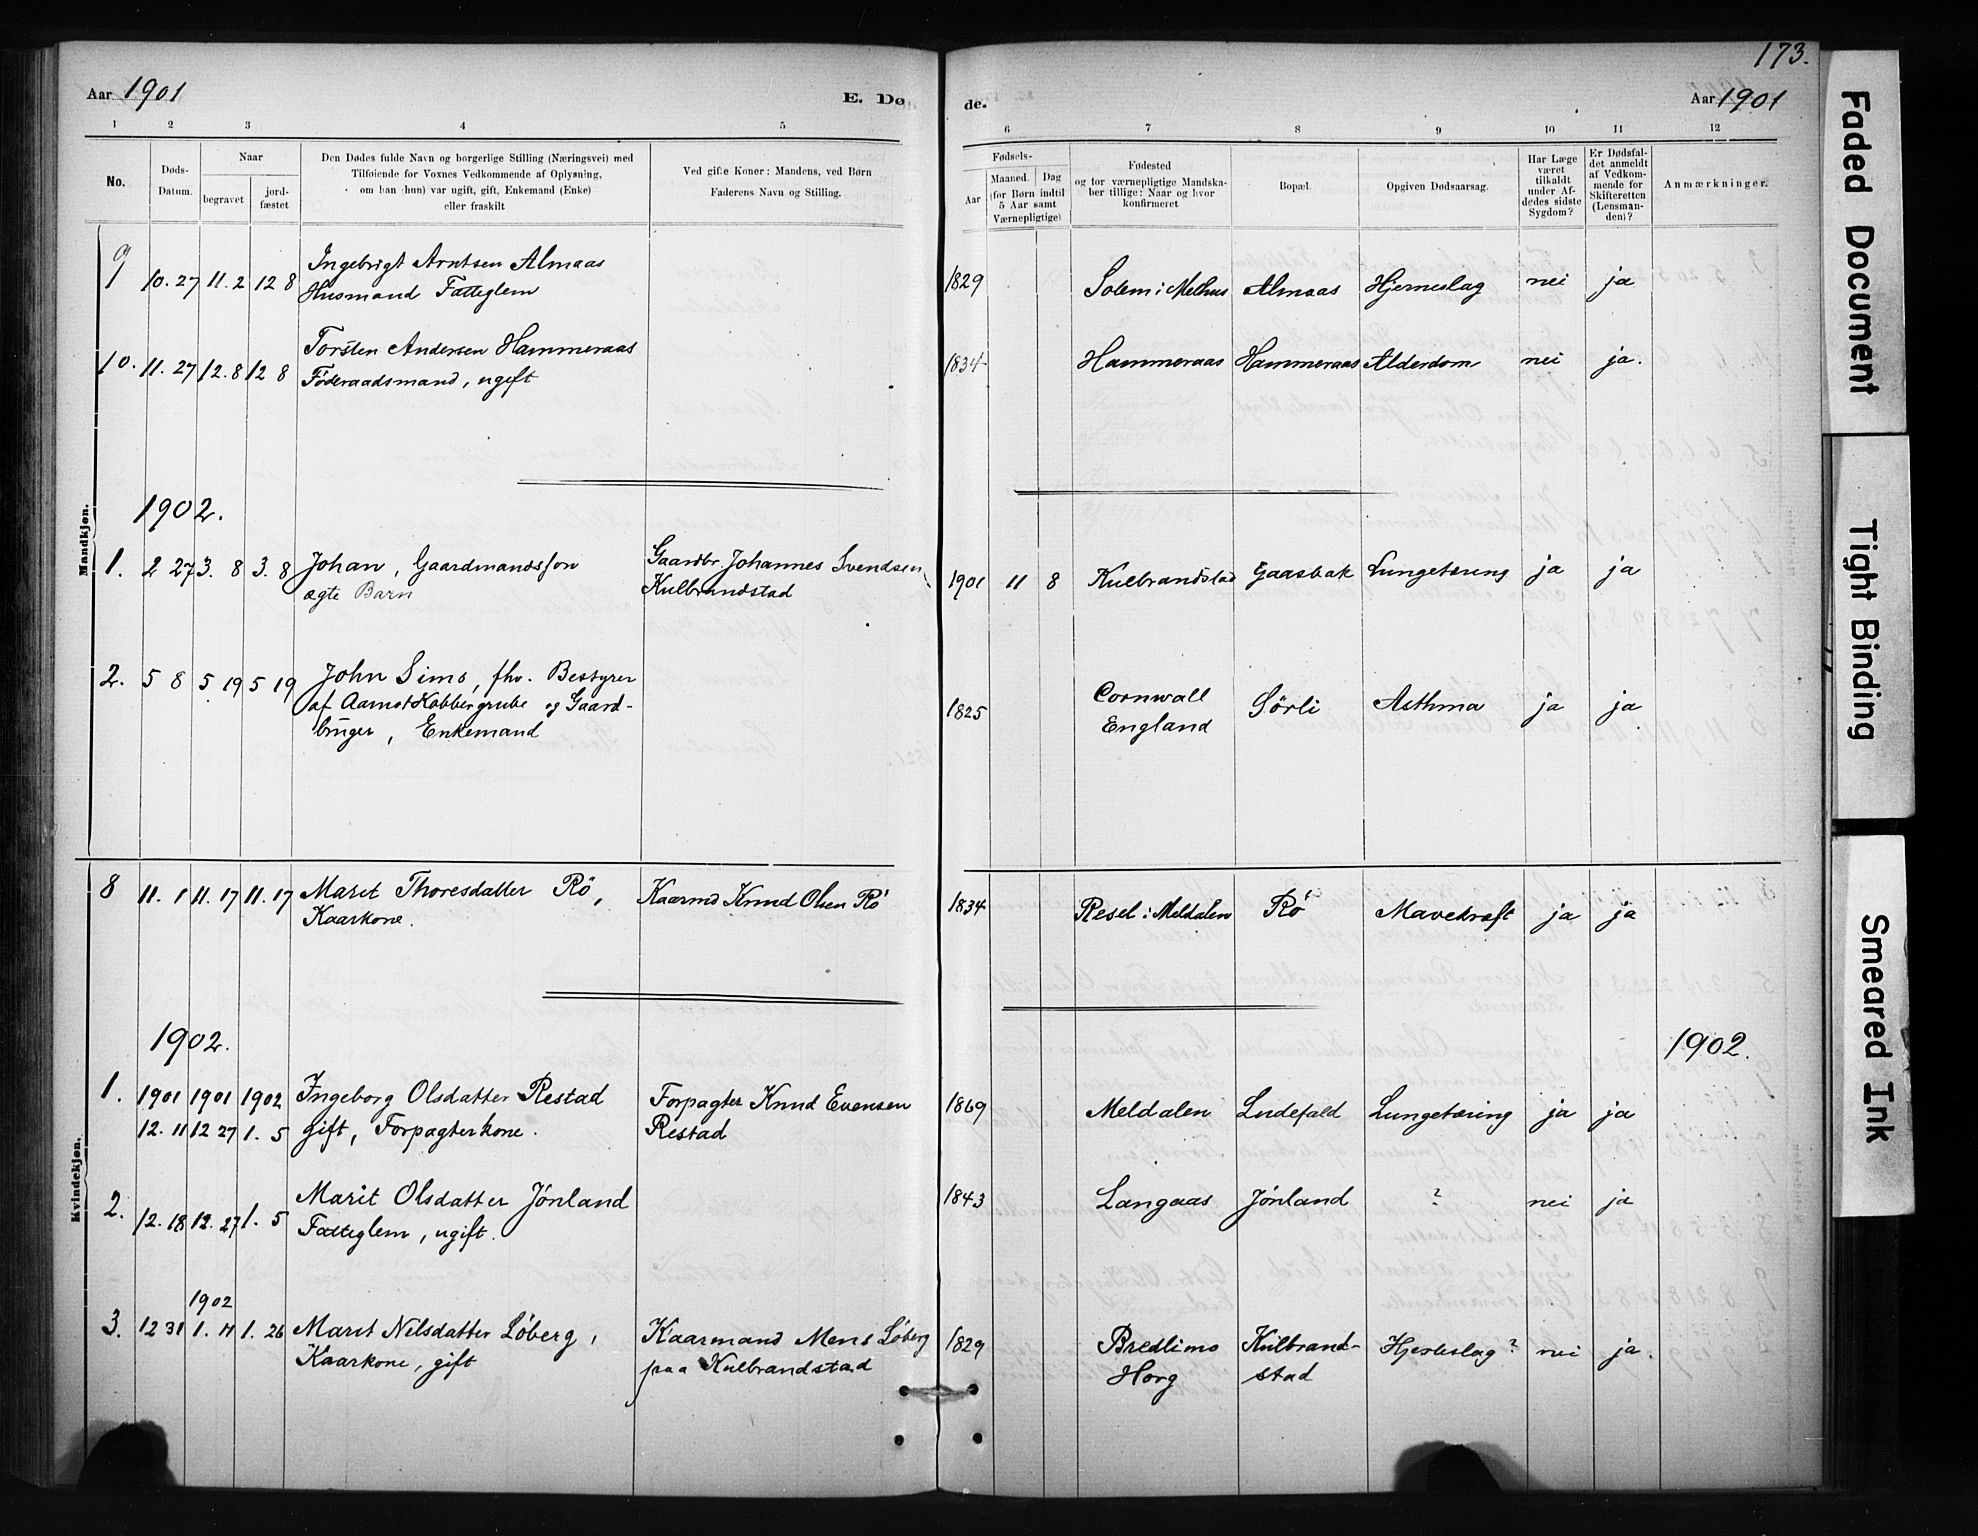 173.
Aar 1901
E. Dø
de.
Aar 1901
1 2 3 4 5 6 7 8 9 10 11 12
No.
Døds-Datum.
Naar
begravet
jordfæstet
Den Dødes fulde Navn og borgerlige Stilling (Næringsvei) med
Tilføiende for Voxnes Vedkommende af Oplysning,
om han (hun) var ugift, gift, Enkemand (Enke)
eller fraskilt
Ved gifte Koner: Mandens, ved Børn
Faderens Navn og Stilling.
Fødsels-
Aar
Maaned. Dag
(for Børn indtil
5 Aar samt
Værnepligtige)
Fødested
og for værnepligtige Mandska-
ber tillige: Naar og hvor
konfirmeret
Bopæl.
Opgiven Dødsaarsag.
Har Læge
været
tilkaldt
under Af-
dødes sidste
Sygdom?
Er Dødsfal-
det anmeldt
af Vedkom-
mende for
Skifteretten
(Lensman-
den)?
Anmærkninger.
Mandkjøn.
9 10. 27 11. 2 12 8 Ingebrigt Arntsen Almaas 1829 Solem i Melhus Almaas Hjerneslag nei ja
Husmand Fatteglem
10. 11. 27 12. 8 12 8 Torsten Andersen Hammeraas 1834 Hammeraas Hammeraas Alderdom nei ja.
Føderaadsmand, ugift
1902.
1. 2 27 3. 8 3. 8 Johan, Gaardmandssøn Gaardbr. Johannes Svendsen 1901 11 8 Kulbrandstad Gaasbak Lungetæring ja ja
ægte Barn Kulbrandstad
2. 5 8 5 19 5 19 John Sims, fhv. Bestyrer 1825 Cornwall Sörli Asthma ja ja
af Aamot Kobbergrube og Gaard- England
bruger, Enkemand
8 11. 1 11. 17 11. 17 Marit Thoresdatter Rö, Kaarmd Knud Olsen Rö 1834 Resel i Meldalen Rö Mavekræft ja ja
Kaarkone.
Kvindekjøn.
1902. 1902.
1. 1901 1901 1902 Ingeborg Olsdatter Restad Forpagter Knud Evensen 1869 Meldalen Ludefald Lungetæring ja ja
12. 11 12 27 1. 5 gift, Forpagterkone. Restad
2. 12. 18 12. 27 1. 5 Marit Olsdatter Jönland 1843 Langaas Jönland ? nei ja
Fatteglem, ugift.
1902
3. 12 31 1. 11 1. 26 Marit Nilsdatter Löberg, Kaarmand Mens Löberg 1829 Bredlimo Kulbrand- Hjerteslag? nei ja.
Kaarkone, gift paa Kulbrandstad Horg stad
Faded Document
Tight Binding
Smeared Ink